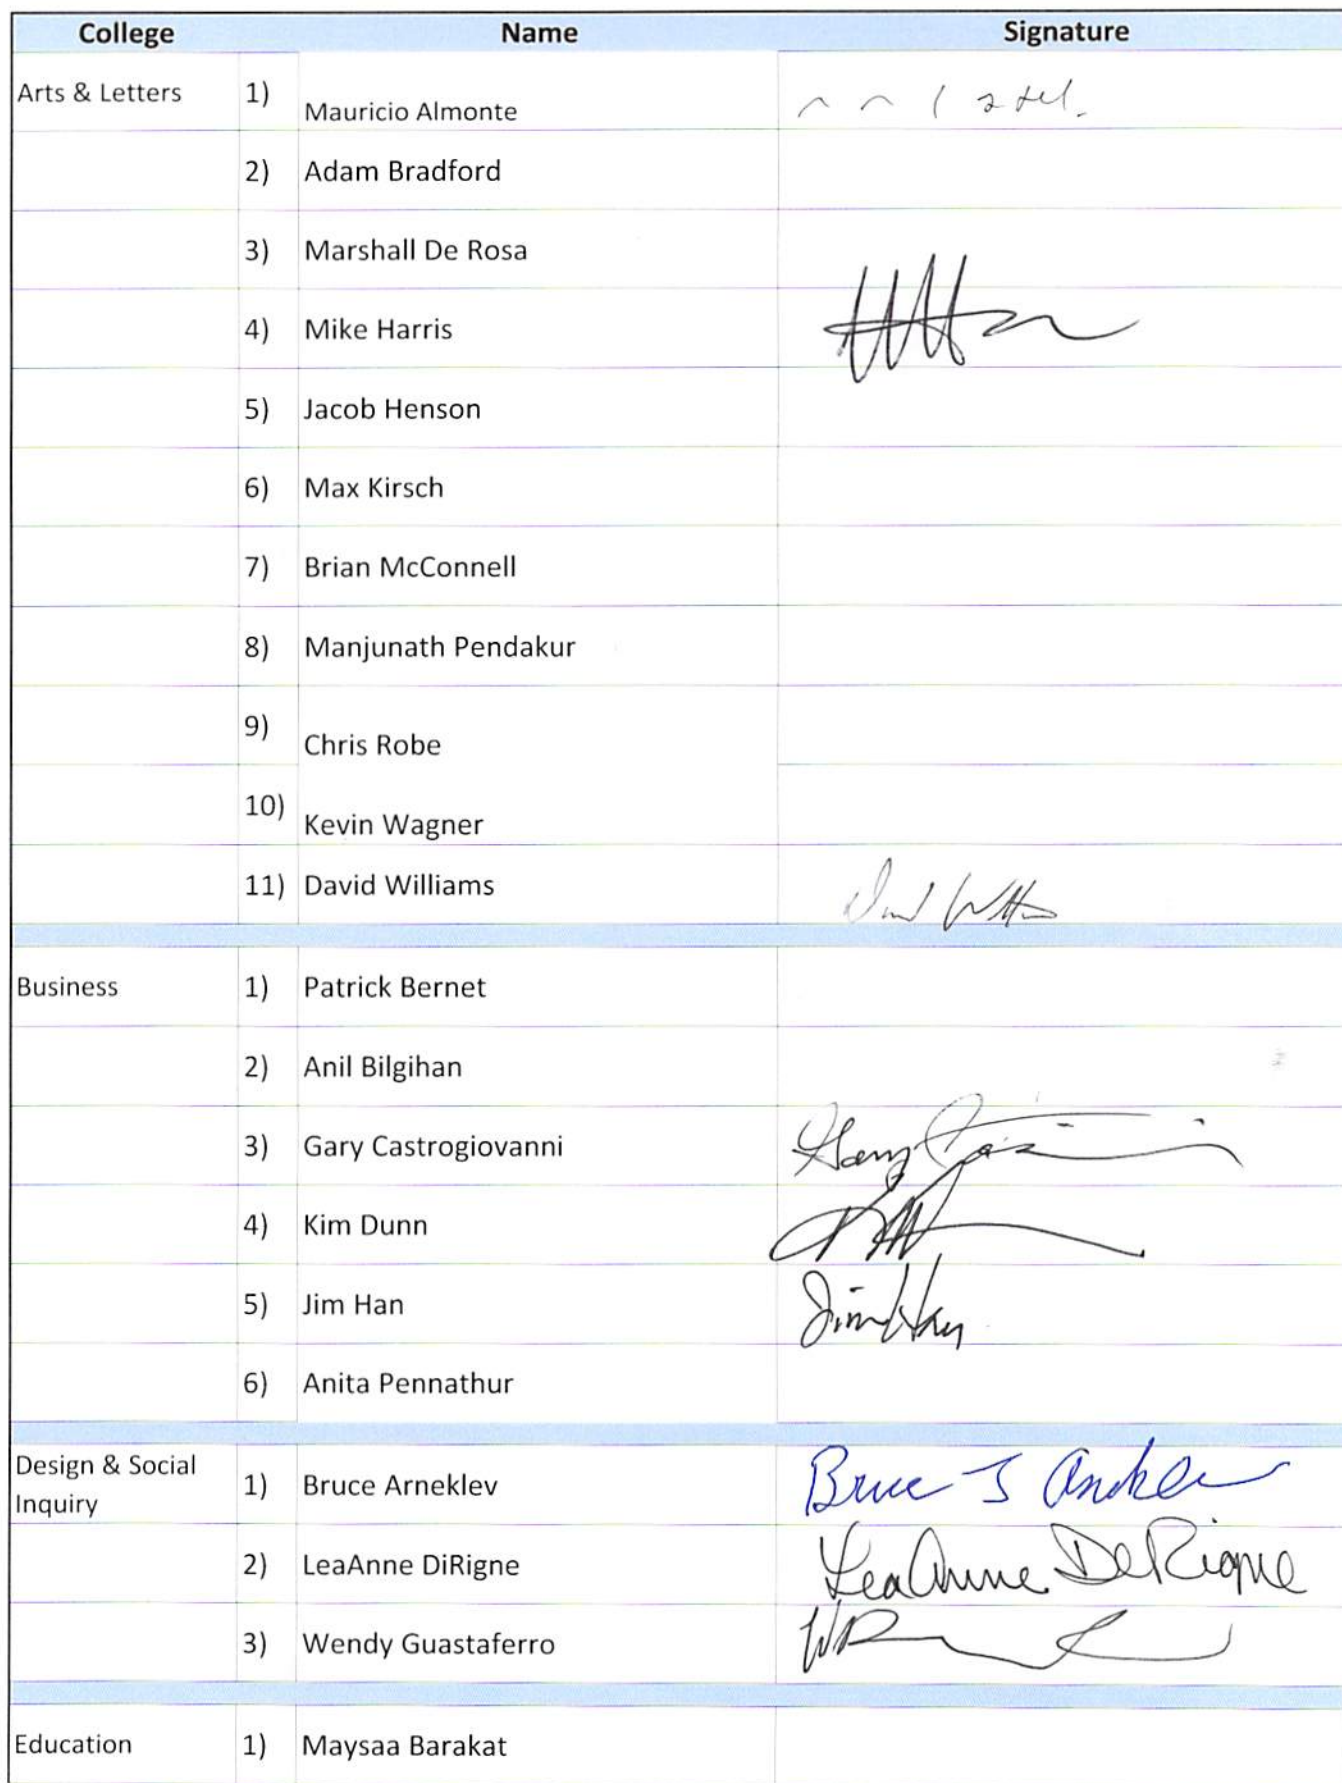 College Name Signature
Arts & Letters 1) Mauricio Almonte
2) Adam Bradford
3) Marshall De Rosa
4) Mike Harris
5) Jacob Henson
6) Max Kirsch
7) Brian McConnell
8) Manjunath Pendakur
9) Chris Robe
10) Kevin Wagner
11) David Williams
Business 1) Patrick Bernet
2) Anil Bilgihan
3) Gary Castrogiovanni Gary
4) Kim Dunn
5) Jim Han Jim Han
6) Anita Pennathur
Design & Social
Inquiry 1) Bruce Arneklev Bruce J Arneklev
2) LeaAnne DiRigne LeaAnne DeRigne
3) Wendy Guastaferro
Education 1) Maysaa Barakat